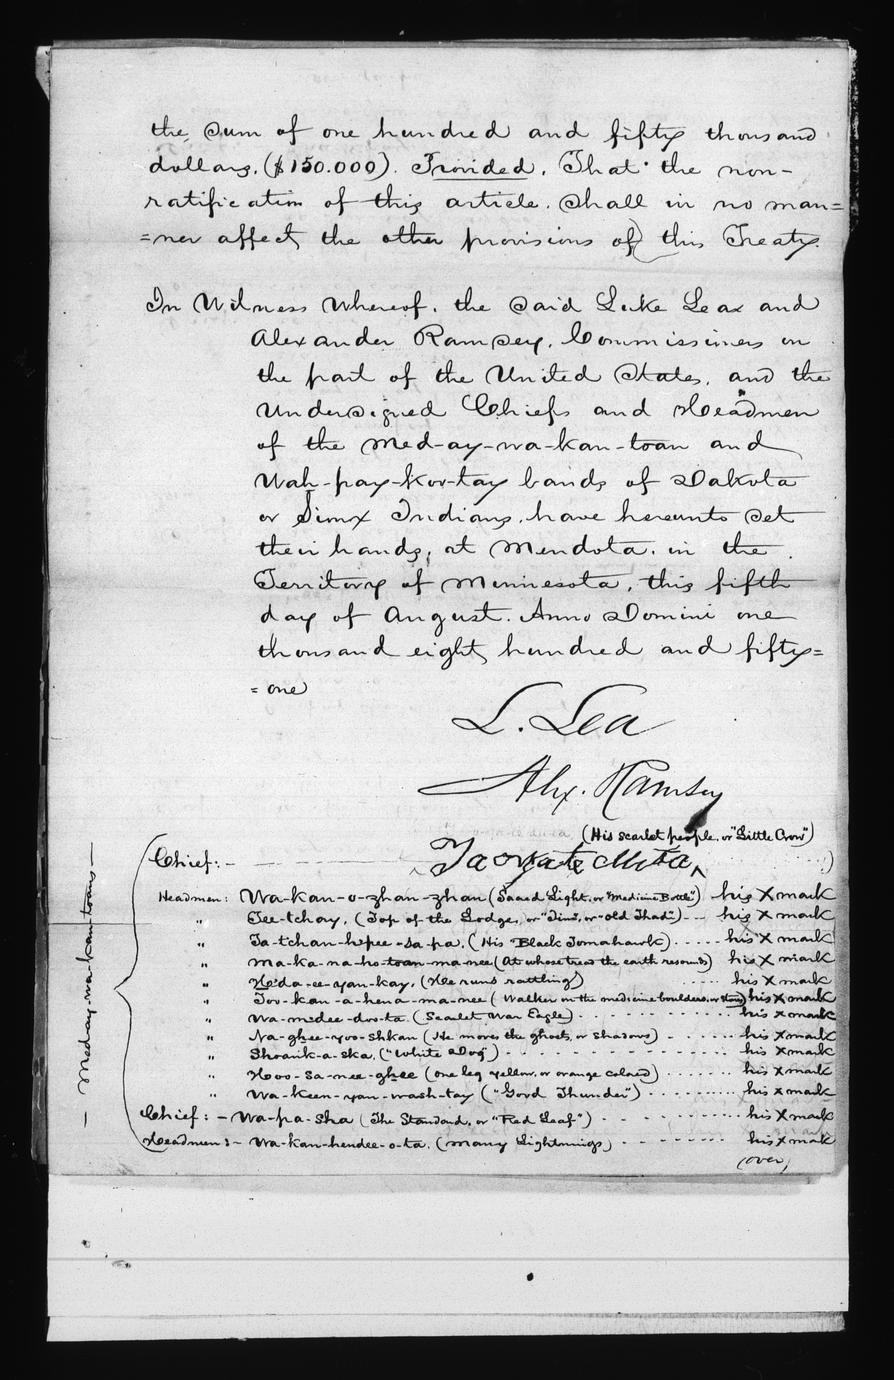 the sum of one hundred and fifty thousand
dollars, ($150.000). Provided, That the non-
ratification of this article, shall in no man=
=ner affect the other provisions of this Treaty.
In Witness Whereof, the said Luke Lea and
Alexander Ramsey, Commissioners on
the part of the United States, and the
Undersigned Chiefs and Headmen
of the Med-ay-wa-kan-toan and
Wah-pay-koo-tay bands of Dakota
or Sioux Indians, have hereunto set
their hands, at Mendota, in the
Territory of Minnesota, this fifth
day of August, Anno Domini one
thousand eight hundred and fifty=
=one
L. Lea
Alex. Ramsey
(His scarlet people, or "Little Crow")
Chief:- Ta Oyate Duta
Med-ay-wa-kan-toans
Headmen: Wa-kan-o-zhan-zhan (Sacred Light, or "Medicine Bottle") his X mark
" Tee-tchay, (Top of the Lodge, or "Jim", or "Old Thad") his X mark
" Ta-tchan-h'pee-sa-pa, (His Black Tomahawk) his X mark
" Ma-ka-na-ho-toan-ma-nee (At whose tread the earth resounds) his X mark
" H'da-ee-yan-kay, (He runs rattling) his X mark
" Too-kan-a-hena-ma-nee (Walker on the medicine boulders, or stones) his X mark
" Wa-m'dee-doo-ta (Scarlet War Eagle) his X mark
" Na-ghee-yoo-shkan (He moves the ghosts, or shadows) his X mark
" Shoank-a-ska, ("White Dog") his X mark
" Hoo-sa-nee-ghee (one leg yellow, or orange colored) his X mark
" Wa-keen-yan-wash-tay ("Good Thunder") his X mark
Chief:- Wa-pa-sha (The Standard, or "Red Leaf") his X mark
Headmen:- Wa-kan-hendee-o-ta, (Many Lightnings) his X mark
(over)